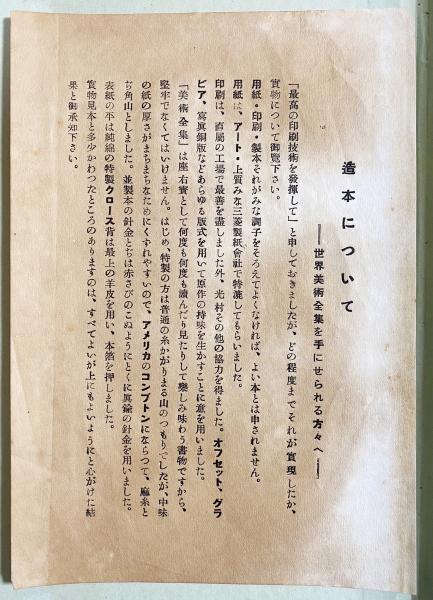 造本について
——世界美術全集を手にせられる方々へ——
「最高の印刷技術を發揮して」と申しておきましたが、どの程度までそれが實現したか、
實物について御覽下さい。
用紙・印刷・製本それがみな調子をそろえてよくなければ、よい本とは申されません。
用紙は、アート・上質みな三菱製紙會社で特漉してもらいました。
印刷は、直屬の工場で最善を盡しました外、光村その他の協力を得ました。オフセット、グラ
ビア、寫眞銅版などあらゆる版式を用いて原作の持味を生かすことに意を用いました。
「美術全集」は座右寶として何度も何度も讀んだり見たりして樂しみ味わう書物ですから、
堅牢でなくてはいけません。はじめ、特製の方は普通の糸かがりまる山のつもりでしたが、中味
の紙の厚さがまちまちなためにくずれやすいので、アメリカのコンプトンにならつて、麻糸と
ぢ角山としました。並製本の針金とぢは赤さびのこぬようにとくに眞鍮の針金を用いました。
表紙の平は純綿の特製クロース背は最上の羊皮を用い、本箔を押しました。
實物見本と多少かわつたところのありますのは、すべてよいが上にもよいようにと心がけた結
果と御承知下さい。